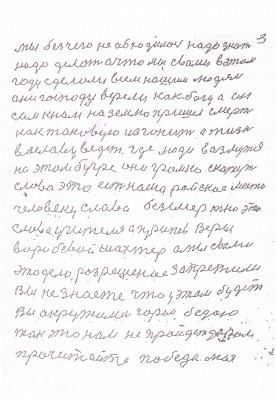 3
мы без чего не обходимся надо знат
надо делат а что мы с вами в этом
году сделали всем нашим людям
они господу верели как богу а он
сам к нам на землю пришел смерт
как таковую изгонит а жизн
введет где люди возмутся
на этом бугре они громко скажут
слова это ест наша райское место
человеку слава бессмертно это
слова учителя а причина Веры
воробевой шахтер а мы с вами
это дело розрешеное запретили
Вы не знаете что у этом будит
Вы окружими горое бедою
как это нам не пройдет даром
прочитайте победа моя